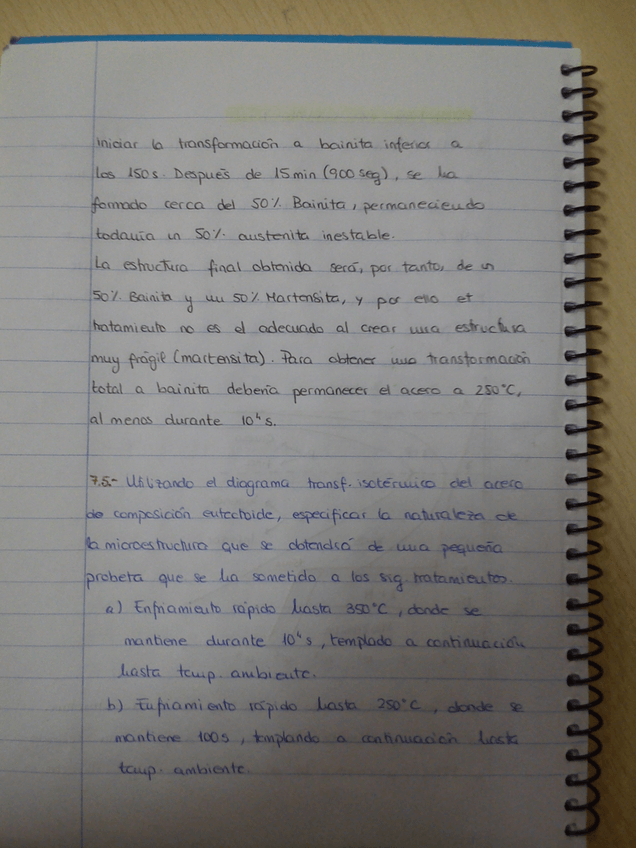 Iniciar la transformación a bainita inferior a
los 150s. Después de 15 min (900 seg), se ha
formado cerca del 50% Bainita, permaneciendo
todavía un 50% austenita inestable.
La estructura final obtenida será, por tanto, de un
50% Bainita y un 50% Martensita, y por eso et
tratamiento no es el adecuado al crear una estructura
muy frágil (martensita). Para obtener una transformación
total a bainita debería permanecer el acero a 250°C,
al menos durante 10⁴ s.
7.5.- Utilizando el diagrama transf. isotérmico del acero
de composición eutectoide, especificar la naturaleza de
la microestructura que se obtendrá de una pequeña
probeta que se ha sometido a los sig tratamientos.
a) Enfriamiento rápido hasta 350°C, donde se
mantiene durante 10⁴ s, templado a continuación
hasta temp. ambiente.
b) Enfriamiento rápido hasta 250°C, donde se
mantiene 100s, templando a continuación hasta
temp. ambiente.